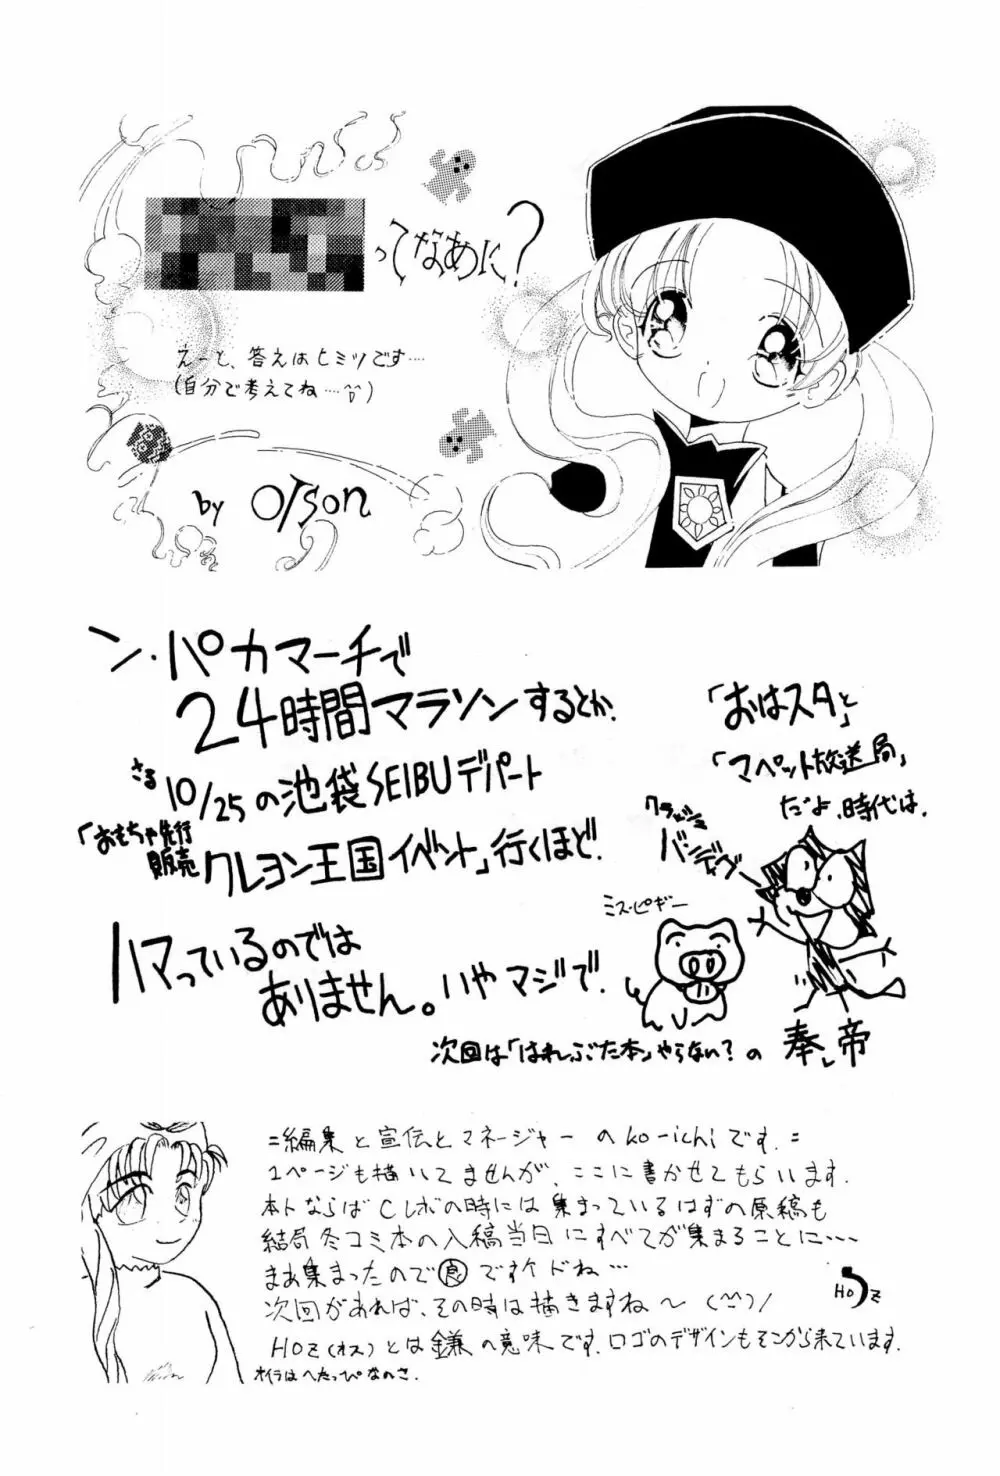 ってなあに?
えーと、答えはヒミツです‥‥
(自分で考えてね‥‥)
by oTson
ン・パカマーチで
24時間マラソンするとか、
さる
10/25の池袋SEIBUデパート
「おもちゃ先行
販売
クレヨン王国イベント」行くほど、
ハマっているのでは
ありません。いやマジで。
「おはスタ」と
「マペット放送局」
だよ、時代は。
クラッシュ
バンディグー
ミス・ピギー
次回は「はれぶた本」やらない?の
奉帝
=編集と宣伝とマネージャーのko-ichiです.=
1ページも描いてませんが、ここに書かせてもらいます.
本トならばCレボの時には集まっているはずの原稿も
結局冬コミ本の入稿当日にすべてが集まることに‥‥
まあ集まったので良ですケドね…
次回があれば、その時は描きますね〜(^^)/
HOz
HOz(オス)とは鎌の意味です.ロゴのデザインもそこから来ています.
オイラはへたっぴなのさ.